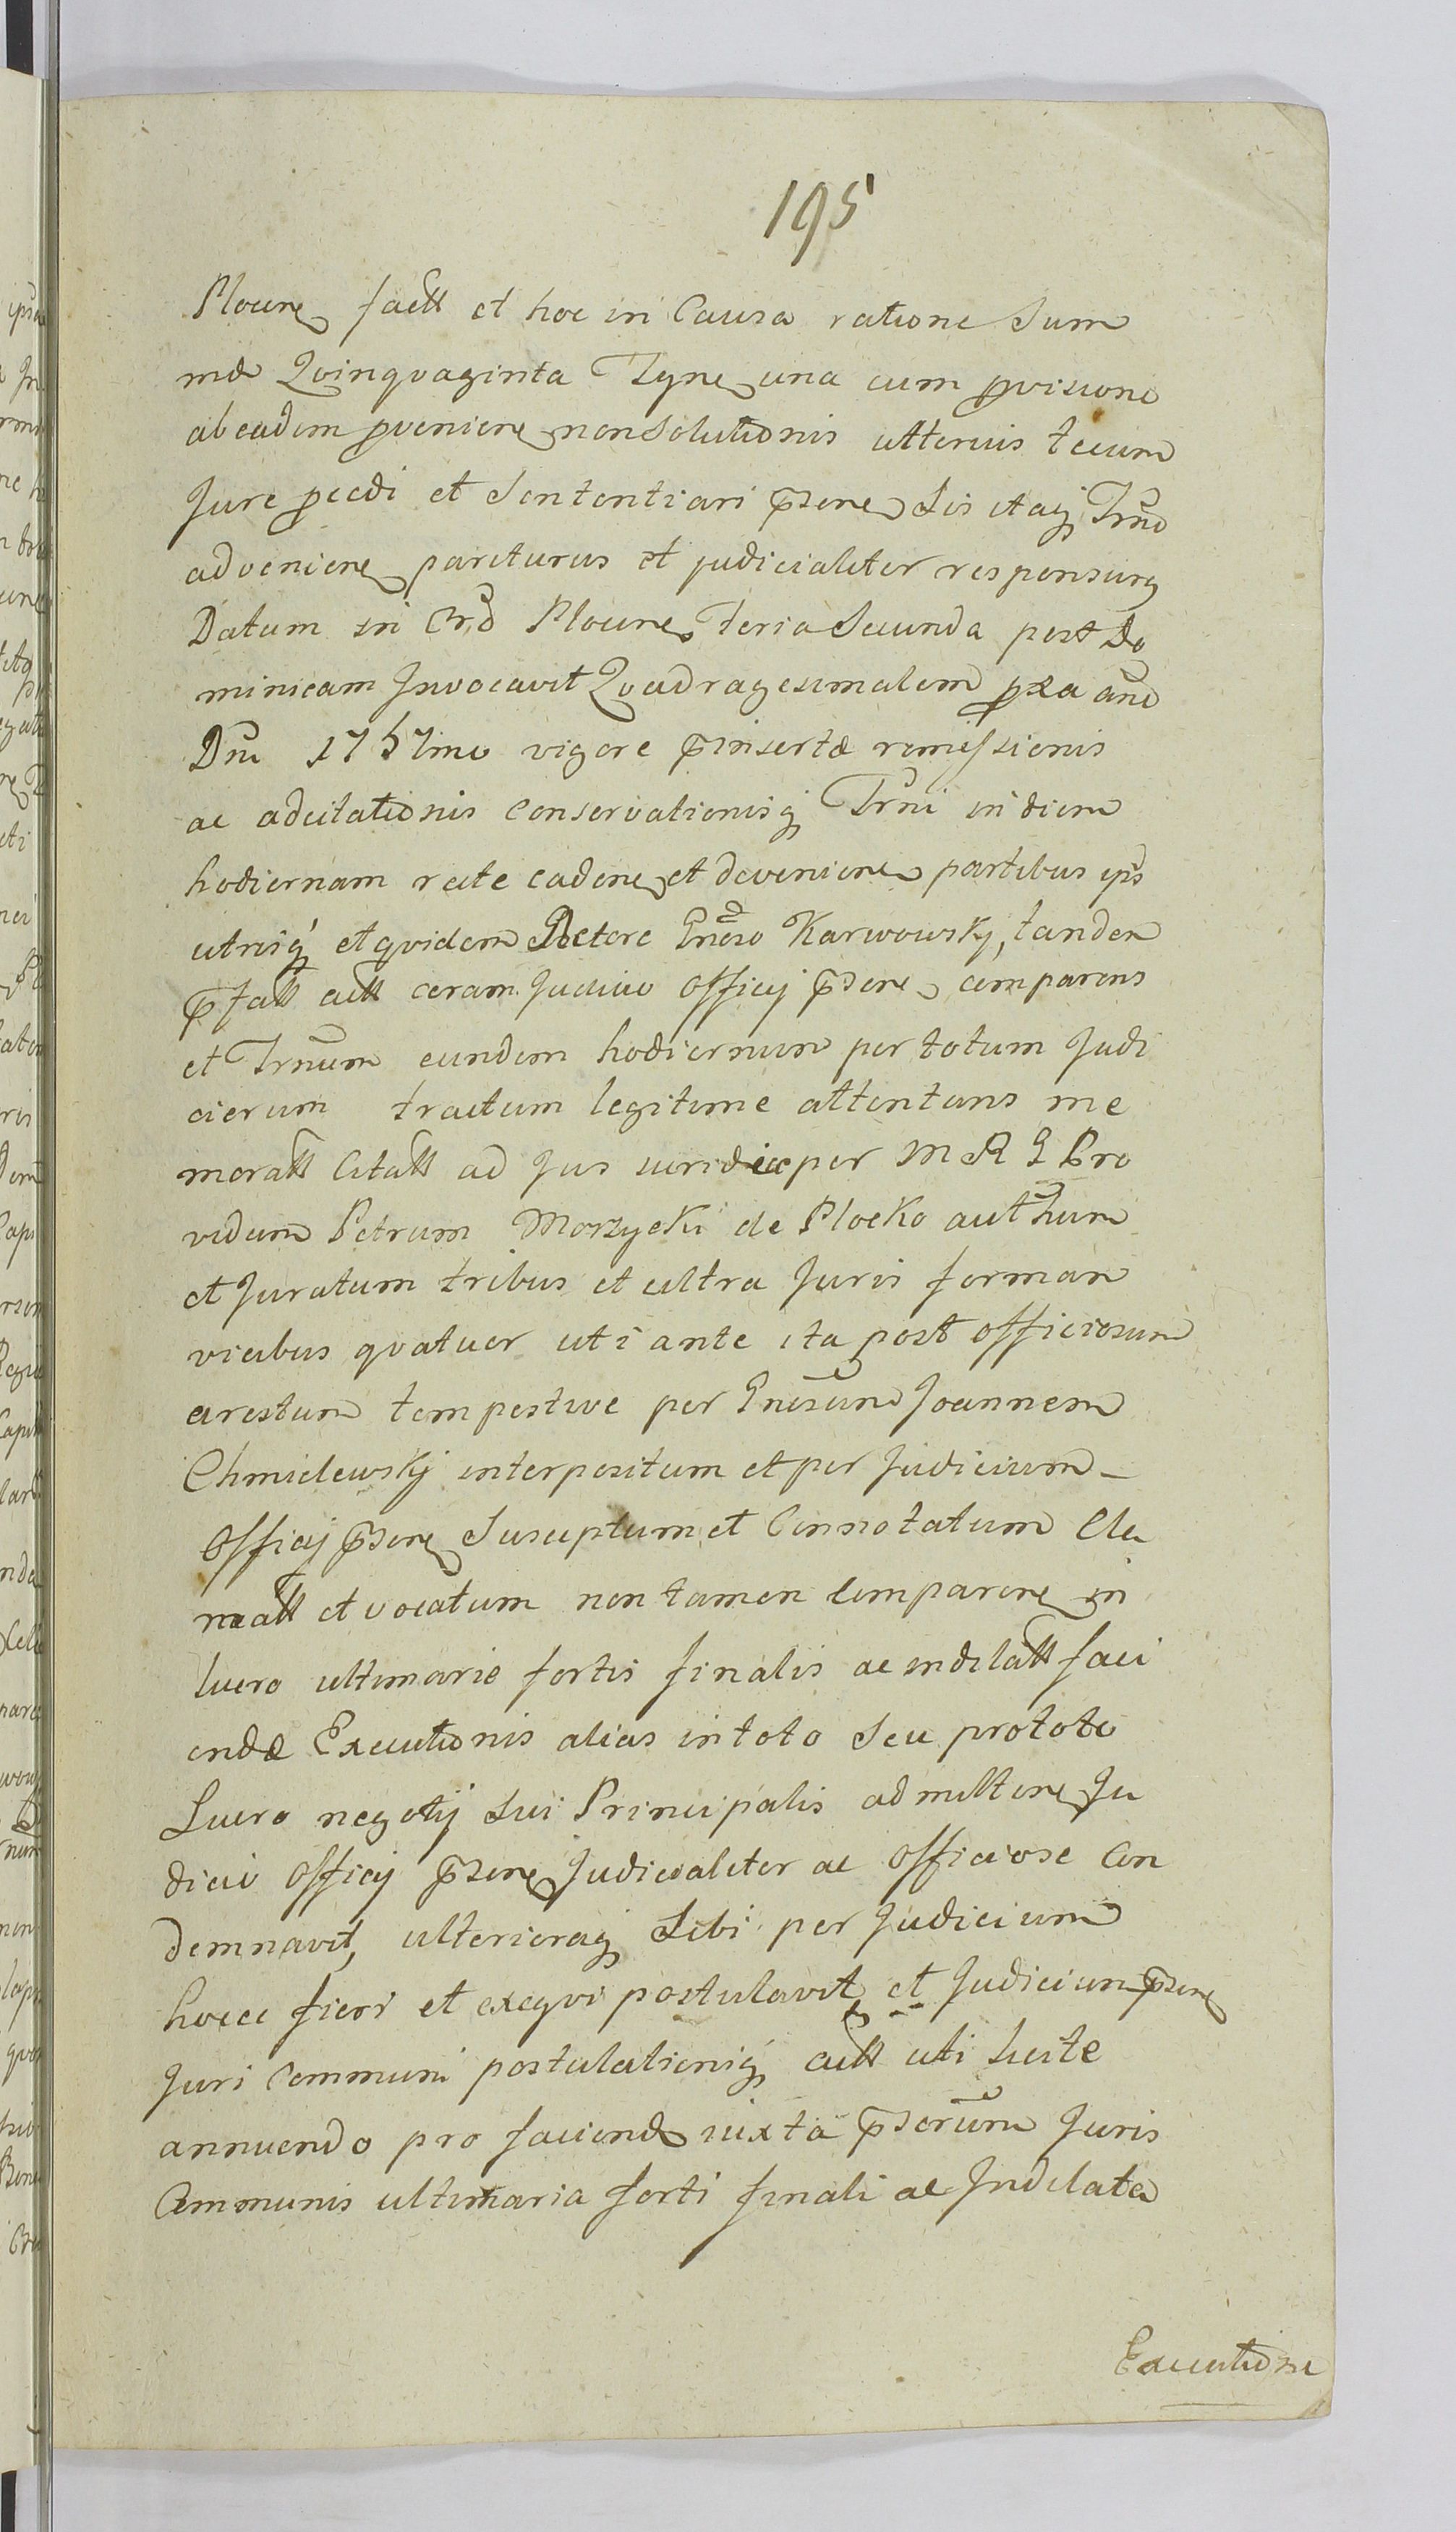 195
Plocine factt et hoc in Causa ratione Sum
mæ Qvinqvaginta Tyne una cum pvisione
ab eadem pveniene non Solutionis ulterius tecum
Jure pcedi et Sententiari pzene Sis itaq Trno
adveniene pariturus et judicialiter responsurg
Datum in Crd Plocine feria Secunda post Do
minicam Jnvocavit Qvadragesimalem pxa ano
Dni 1757mo vigore pinsertæ remissionis
ac adcitationis conservationisq Trni in diem
hodiernam recte cadene et deveniene partibus ips
utrisq et qvidem Actore Gnoso Karwowsky, tanden
pfatt actt coram Judicio Officij pzene comparens
et Trnum eundem hodiernum per totum Judi
ciorum tractum legitime attentans me
moratt Citatt ad Jus iuridice per M R G Pro
vidum Petrum Morzycki de Plocko authum
et Juratum tribus et ultra Juris forman
vicibus qvatuor uti ante ita post officiosum
arestum tempestive per Gnosum Joannem
Chmielewskj interpositum et per Judicium
Officij pzene Susceptum et Connotatum Cla
matt et vocatum non tamen Comparene in
lucro ultimarie fortis finalis ac indilatt faci
endæ Executionis alias in toto Seu pro toto
Lucro negotij Sui Principalis admittene Ju
dicio Officij pzene Judicialiter ac Officiose Con
demnavit, ulterioraq Sibi per Judicium
hocce fieri et exeqvi postulavit, et Judicium pzene
Juri Communi postulationiq actt uti Juste
annuendo pro faciend iuxta pzorum Juris
Communis ultimaria forti finali ac Jndilata
Executione